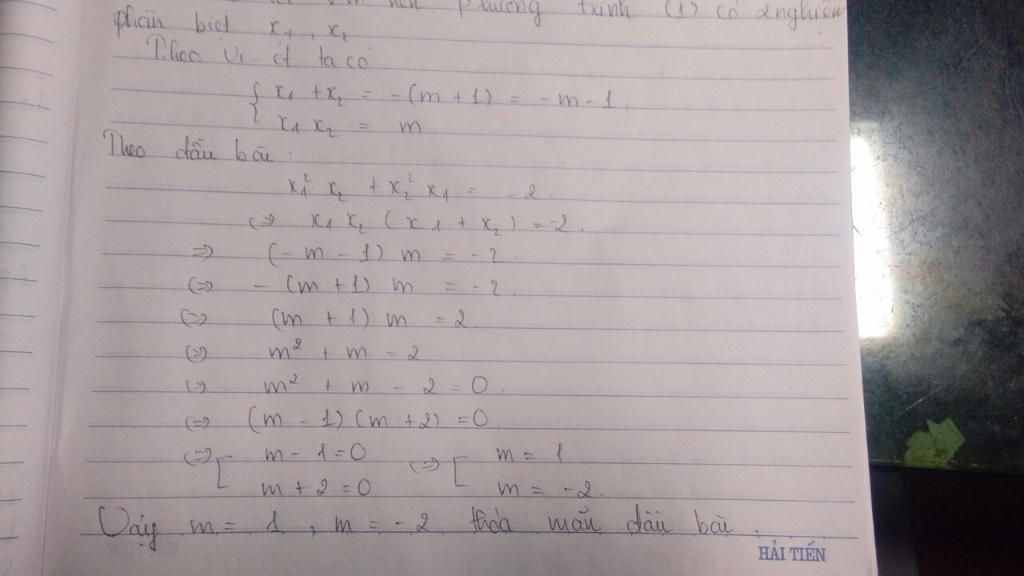 nên phương trình (1) có 2 nghiệm
phân biệt x₁, x₂
Theo Vi-ét ta có
{ x₁ + x₂ = -(m + 1) = -m - 1.
x₁ x₂ = m
Theo đầu bài:
x₁² x₂ + x₂² x₁ = -2
(=) x₁ x₂ (x₁ + x₂) = -2.
=) (-m - 1) m = -2.
(=) - (m + 1) m = -2.
(=) (m + 1) m = 2
(=) m² + m = 2
(=) m² + m - 2 = 0.
(=) (m - 1) (m + 2) = 0
(=) [ m - 1 = 0 (=) [ m = 1
m + 2 = 0 m = -2.
Vậy m = 1, m = -2 thỏa mãn đầu bài.
HẢI TIẾN